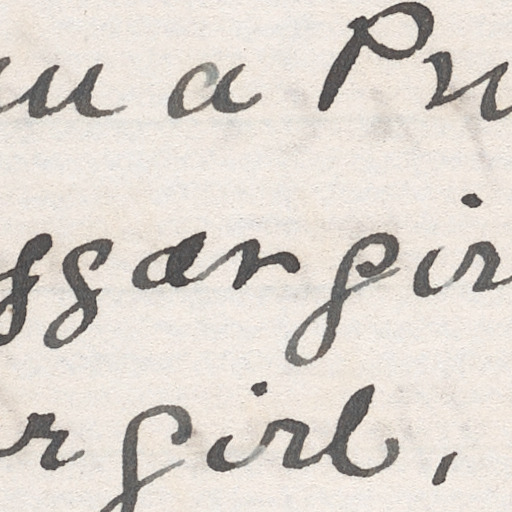 u a Pr
ggar gir
r girl,